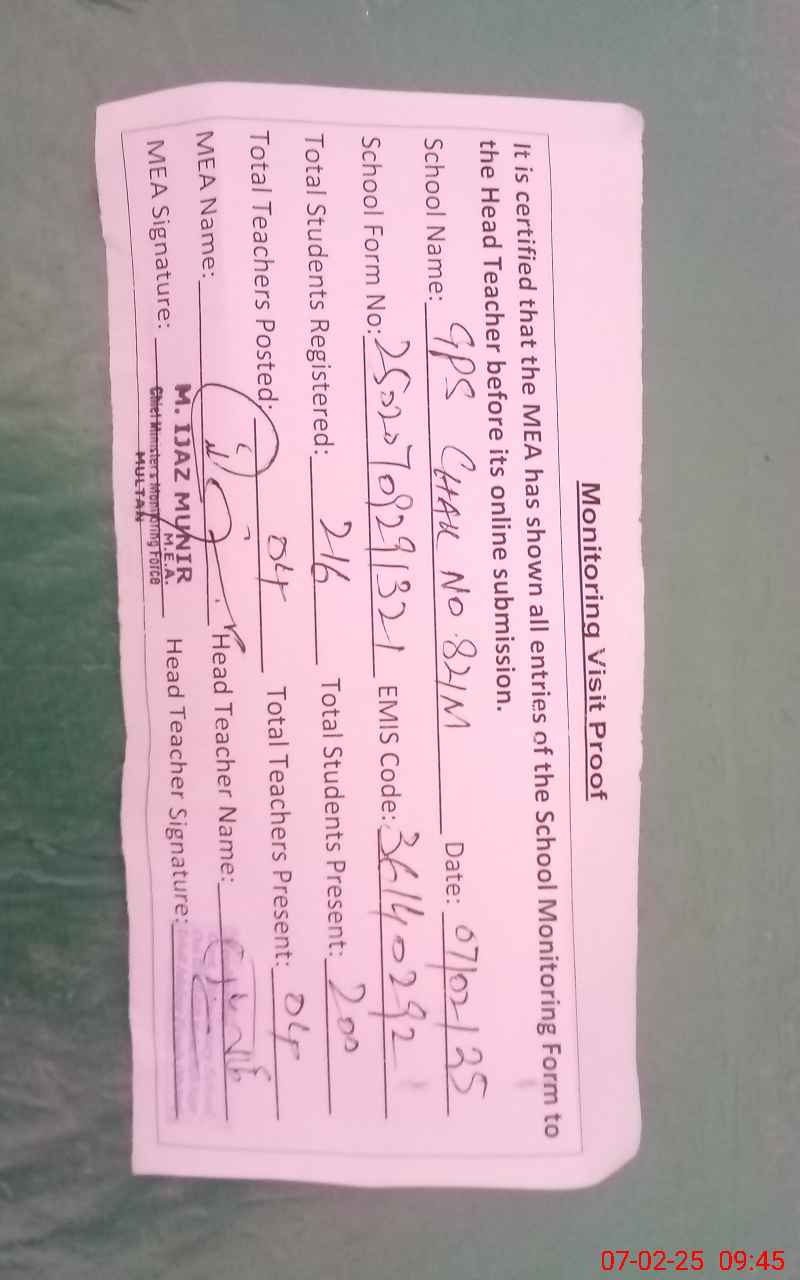 Monitoring Visit Proof
It is certified that the MEA has shown all entries of the School Monitoring Form to
the Head Teacher before its online submission.
School Name: GPS CHAK NO.82/M Date: 07/02/25
School Form No: 25020709291321 EMIS Code: 36140292
Total Students Registered: 216 Total Students Present: 200
Total Teachers Posted: 04 Total Teachers Present: 04
MEA Name: Head Teacher Name:
MEA Signature: Head Teacher Signature:
M. IJAZ MUNIR
M.E.A.
Chief Minister's Monitoring Force
MULTAN
07-02-25 09:45